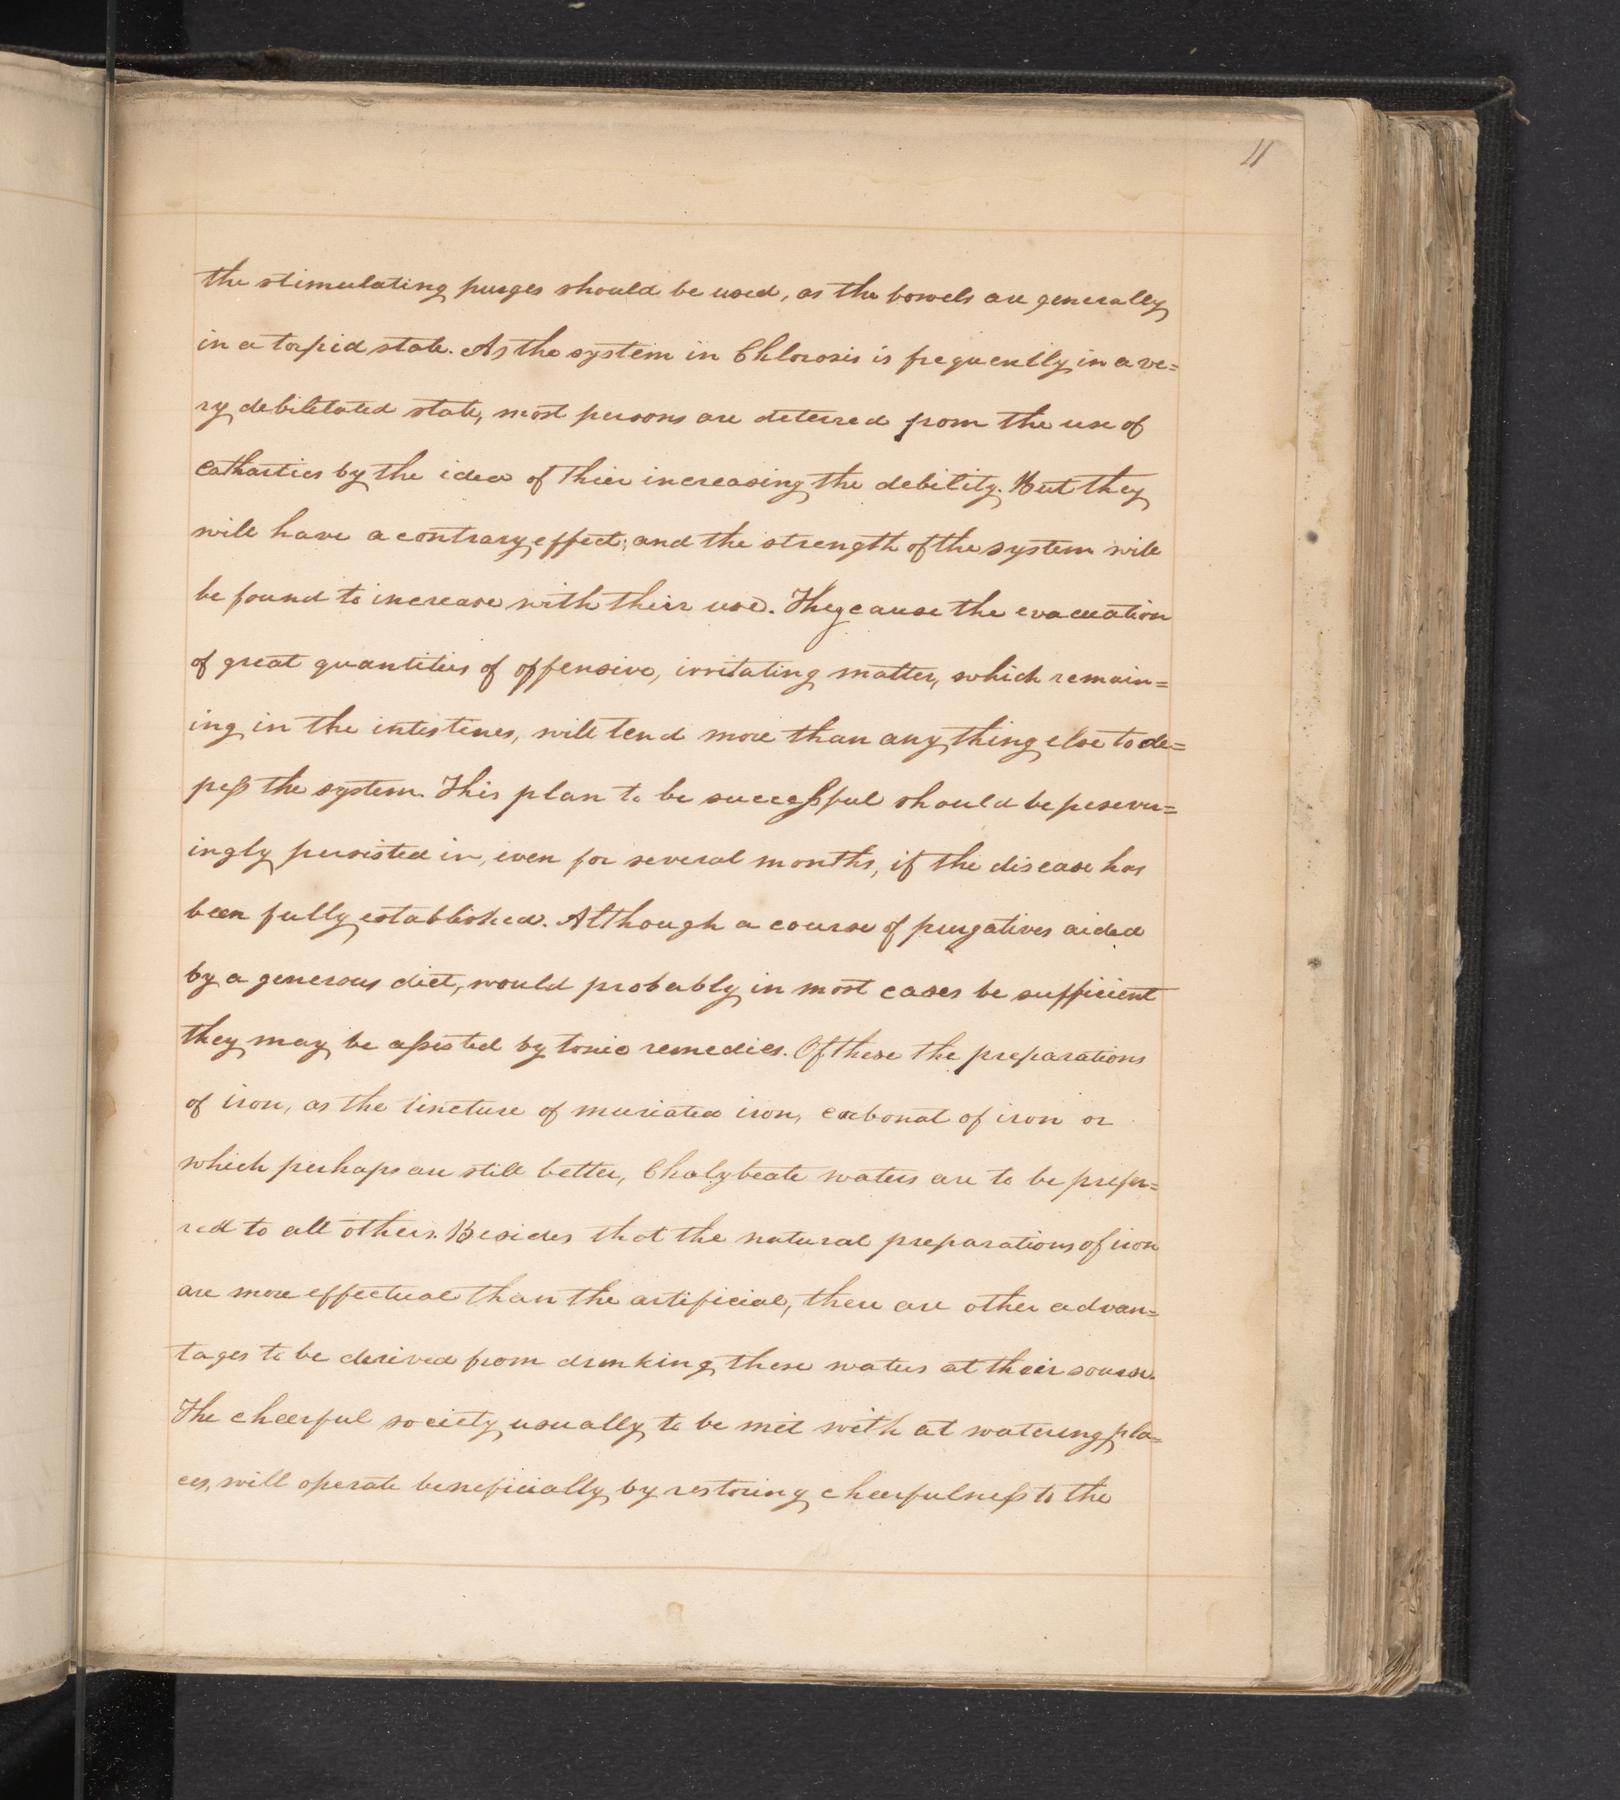 11
the stimulating purges should be used, as the bowels are generally
in a torpid state. As the system in Chlorosis is frequently in a ve=
ry debilitated state, most persons are deterred from the use of
Cathartics by the idea of thier increasing the debility. But they
will have a contrary effect; and the strength of the system will
be found to increase with their use. They cause the evacuation
of great quantities of offensive, irritating matter, which remain=
ing in the intestines, will tend more than any thing else to de=
press the system. This plan to be successful should be persever=
ingly persisted in, even for several months, if the disease has
been fully established. Although a course of purgatives aided
by a generous diet, would probably in most cases be sufficient
they may be assisted by tonic remedies. Of these the preparations
of iron, as the tincture of muriated iron, carbonat of iron or
which perhaps are still better, Chalybeate waters are to be prefer=
red to all others. Besides that the natural preparations of iron
are more effectual than the artificial, there are other advan=
tages to be derived from drinking these waters at their source.
The cheerful society usually to be met with at watering pla=
ces, will operate beneficially by restoring cheerfulness to the